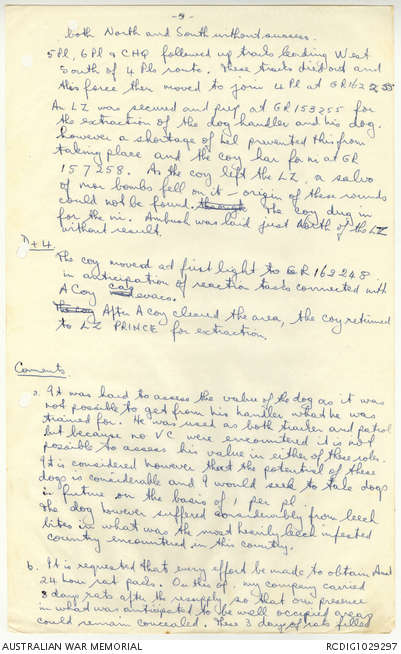 - 5 -
both North and South without success.
5 Pl, 6 Pl & CHQ followed up tracks leading West
South of 4 Pls route. These tracks died out and
this force then moved to join 4 Pl at GR 162 255
An LZ was secured and prep at GR 153255 for
the extraction of the dog handler and his dog.
however a shortage of hel prevented this from
taking place and the coy har form at GR
157258. As the coy left the LZ, a salvo
of mor bombs fell on it - origin of these rounds
could not be found. through The coy dug in
for the ni. Ambush was laid just North of the LZ
without result.
D+4
The coy moved at first light to GR 162248
in anticipation of reaction tasks connected with
A Coy cas evacs.
The coy After A Coy cleared the area, the coy returned
to LZ PRINCE for extraction.
Coments.
a. It was hard to assess the value of the dog as it was
not possible to get from his handler what he was
trained for. He was used as both trailer and patrol
but because no VC were encountered it is not
possible to assess his value in either of these roles.
It is considered however that the potential of these
dogs is considerable and I would seek to take dogs
in future on the basis of 1 per pl.
The dog however suffered considerably from leech
bites in what was the most heavily leech infested
country encountered in this country.
b. It is requested that every effort be made to obtain Aust
24 hour rat packs. On this op, my company carried
3 days rats after the resupply, so that our presence
in what was anticipated to be well occupied area
could remain concealed. These 3 days of rats filled
AUSTRALIAN WAR MEMORIAL
RCDIG1029297